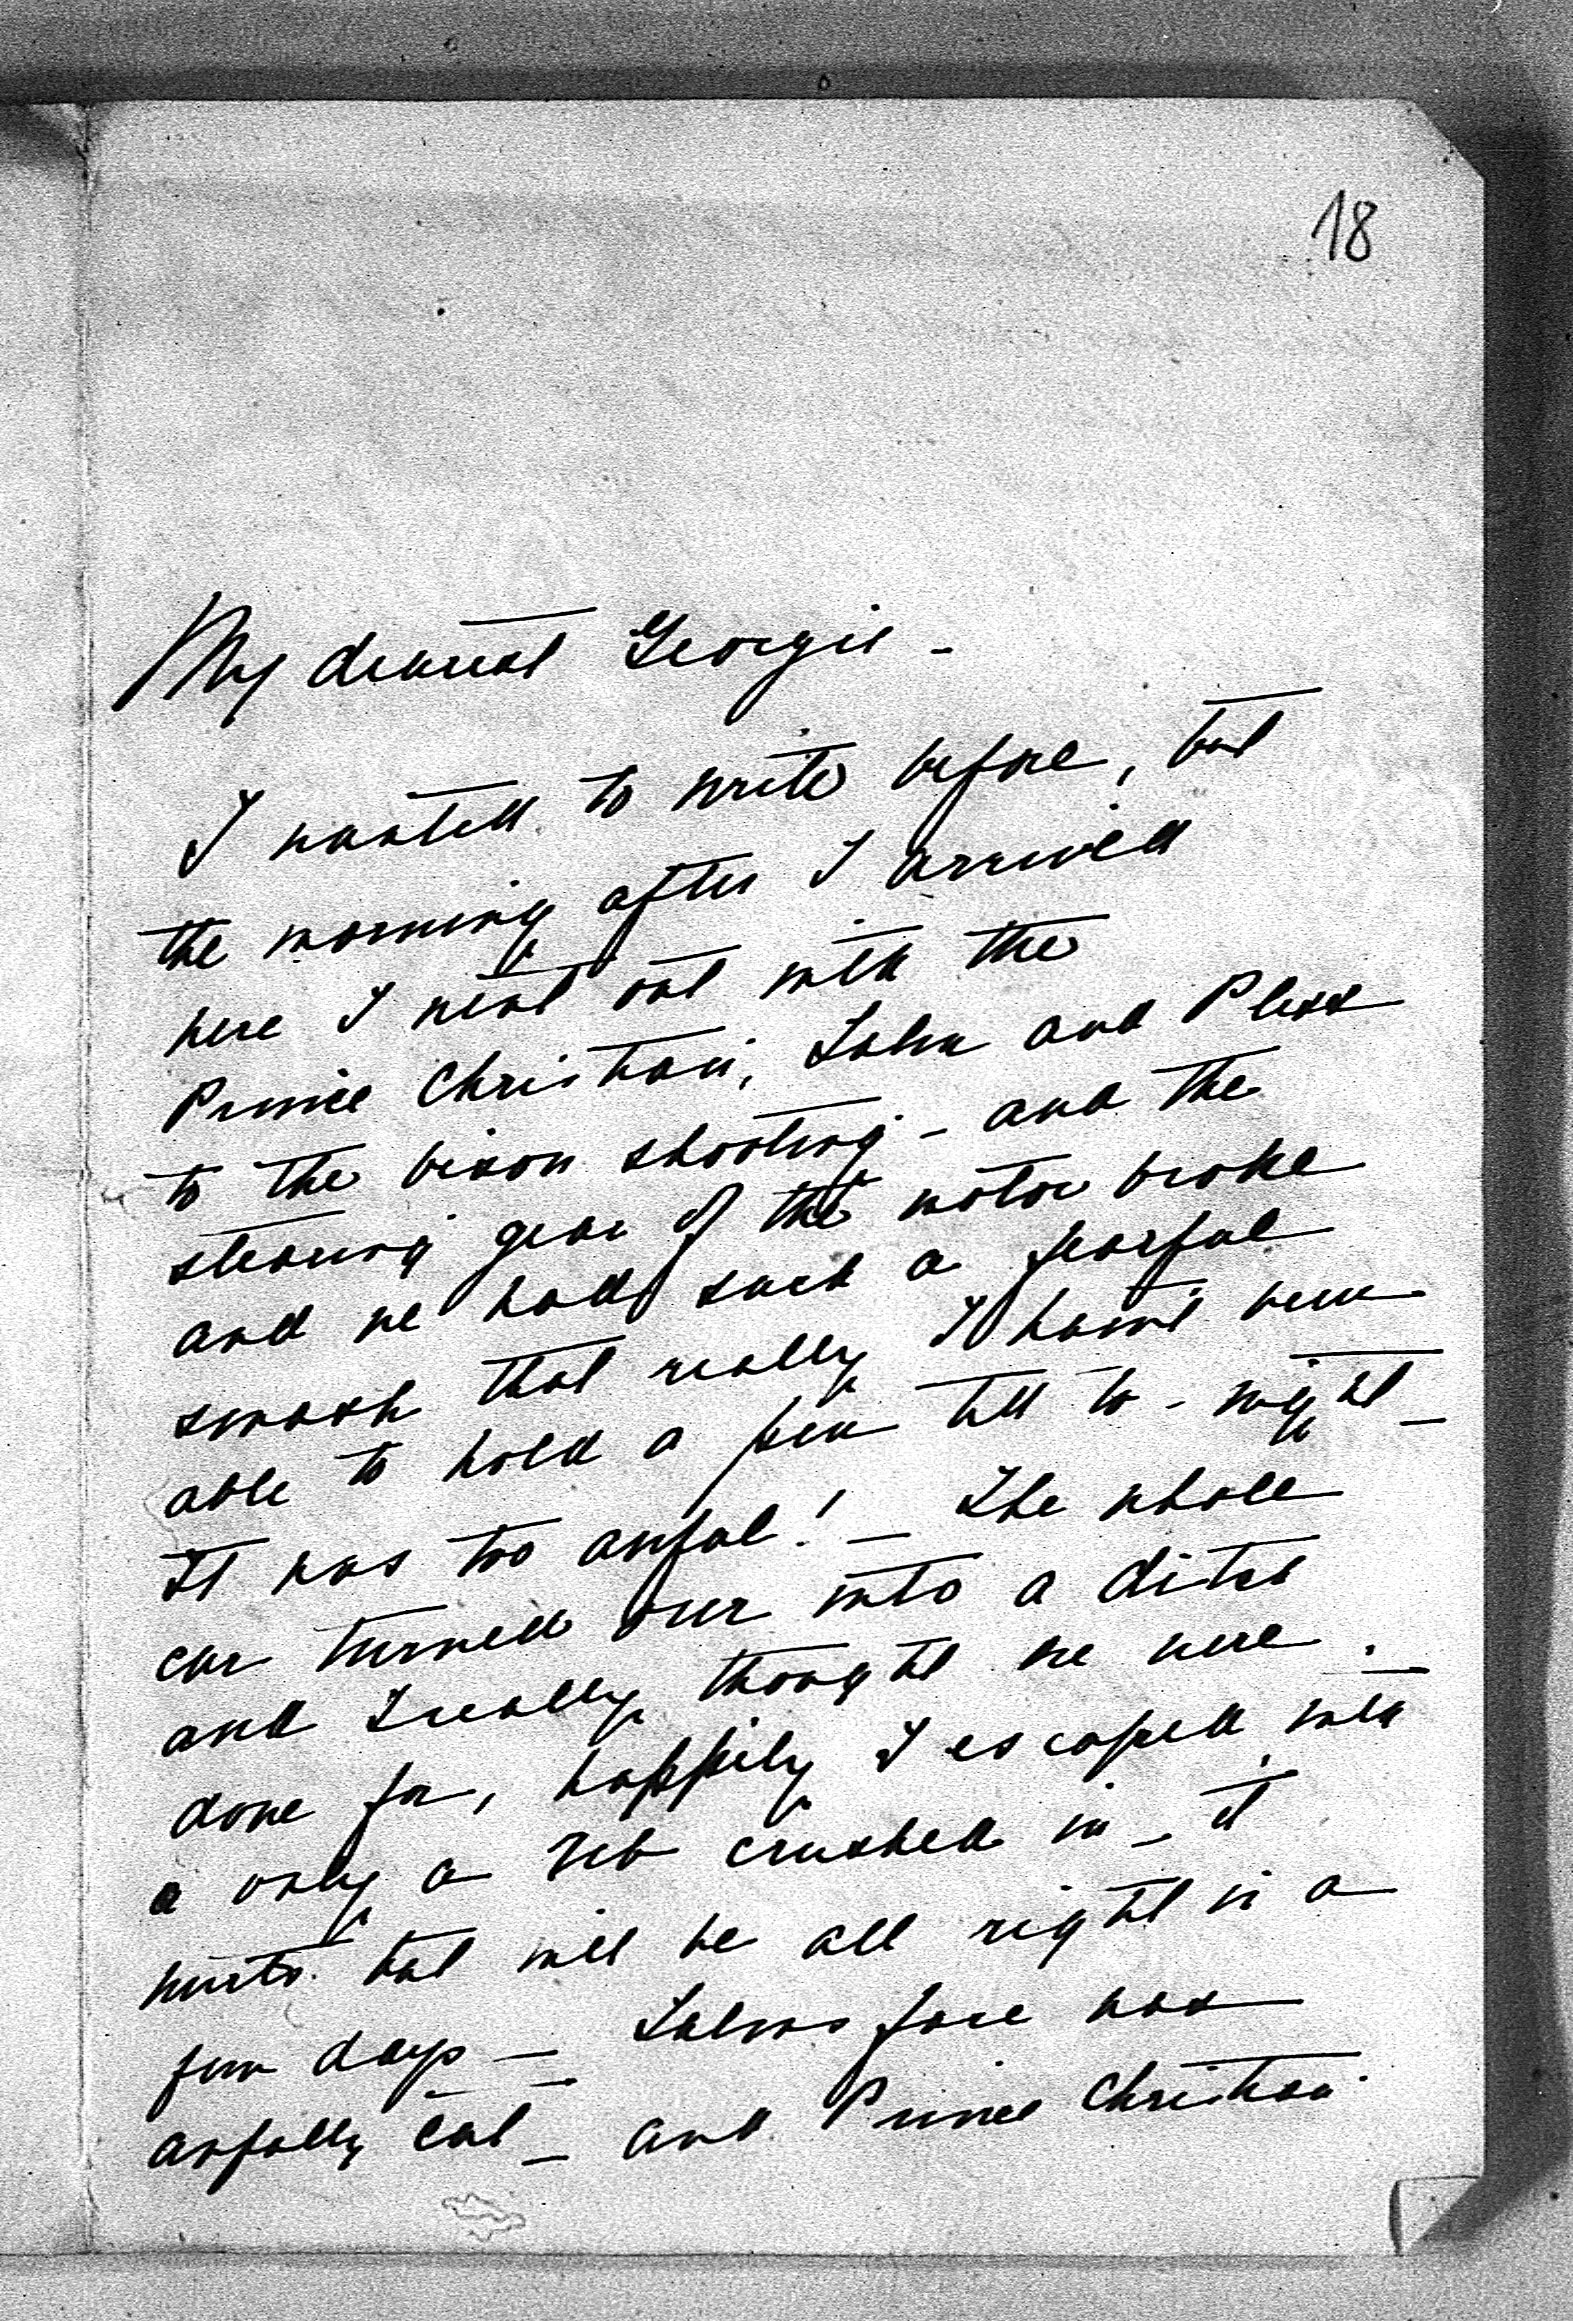 18
My dearest Georgie -
I wanted to write before, but
the morning after I arrived
here I went out with the
Prince Christian, and Pless
to the bison shooting - and the
stearing gear of the motor broke
and we had such a fearful
smash that really I havnt been
able to hold a pen till to-night -
It was too awful! - The whole
car turned over into a ditch
and I really thought we were
done for, happily I escaped with
a only a rib crushed in - it
hurts but will be all right in a
few days - face was
awfully cut - and Prince Christian